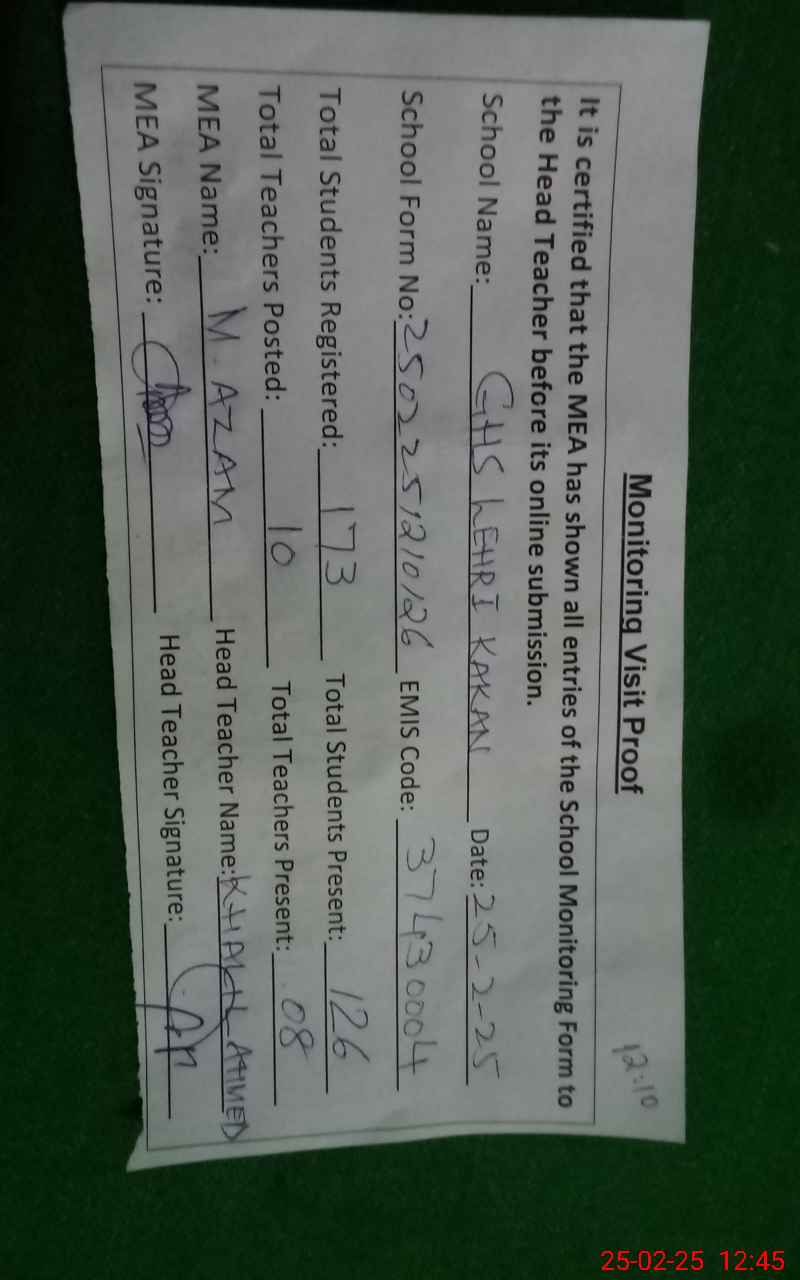 12:10
Monitoring Visit Proof
It is certified that the MEA has shown all entries of the School Monitoring Form to
the Head Teacher before its online submission.
School Name: GHS LEHRI KAKAN Date: 25-2-25
School Form No: 2502251210126 EMIS Code: 37430004
Total Students Registered: 173 Total Students Present: 126
Total Teachers Posted: 10 Total Teachers Present: 08
MEA Name: M. AZAM Head Teacher Name: AHMED
MEA Signature: Head Teacher Signature:
25-02-25 12:45